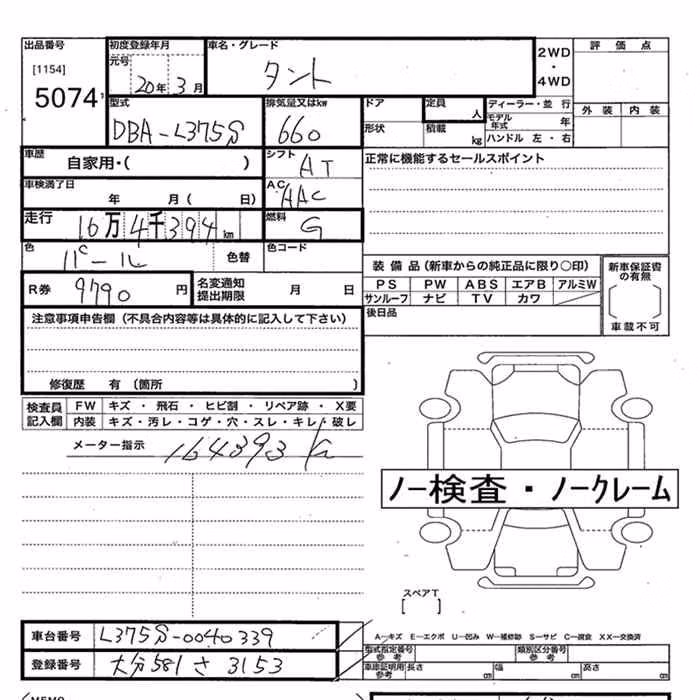 出品番号 初度登録年月 車名・グレード 評価点
[1154] 元号 2WD・4WD
5074 20年 3月 タント
型式 排気量又はkw ドア 定員 人 ディーラー・並行 外装 内装
DBA-L375S 660 形状 積載 kg モデル年式 年
ハンドル 左・右
車歴 自家用・( ) シフト AT 正常に機能するセールスポイント
車検満了日 年 月( 日) AC AAC
走行 16万4千394km 燃料 G
色 パール 色替 色コード
装備品(新車からの純正品に限り○印) 新車保証書の有無
R券 9790円 名変通知提出期限 月 日 PS PW ABS エアB アルミW
サンルーフ ナビ TV カワ
注意事項申告欄(不具合内容等は具体的に記入して下さい) 後日品 車載不可
修復歴 有(箇所 )
検査員記入欄 FW キズ・飛石・ヒビ割・リペア跡・X要
内装 キズ・汚レ・コゲ・穴・スレ・キレ・破レ
メーター指示 164393
ノー検査・ノークレーム
スペアT
[ ]
車台番号 L375S-0040339 A―キズ E―エクボ U―凹み W―補修跡 S―サビ C―腐食 XX―交換済
型式指定番号 参考 類別区分番号 参考
登録番号 大分581さ3153 車庫証明用参考 長さ cm 幅 cm 高さ cm
MEMO